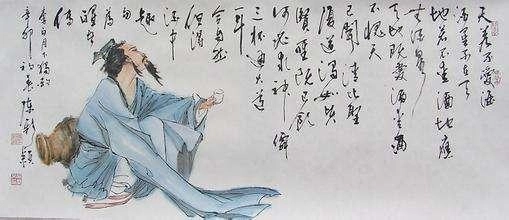 天若不愛酒
酒星不在天
地若不愛酒地應
無酒泉
天地既愛酒愛酒
不愧天
已聞清比聖
復道濁如賢
賢聖既已飲
何必求神僊
三杯通大道
一斗
合自然
但得
酒中
趣
勿為
醒者
傳
李白月下獨酌
辛卯初春陳新